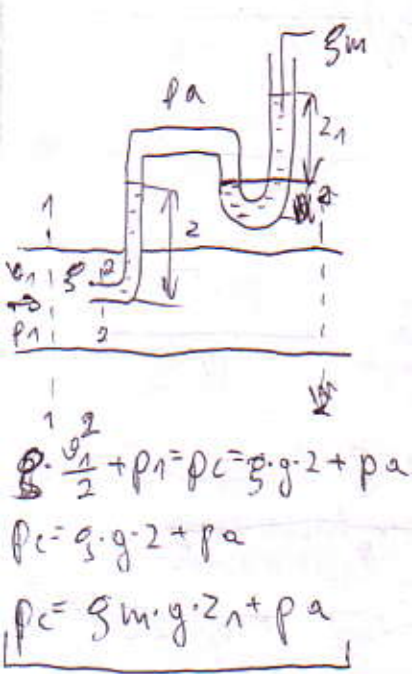 ρm
pa
z1
1
z
2
v1 ρ 2
p1
2
1
ρ · v1²/2 + p1 = pc = ρ · g · z + pa
pc = ρ · g · z + pa
pc = ρm · g · z1 + pa